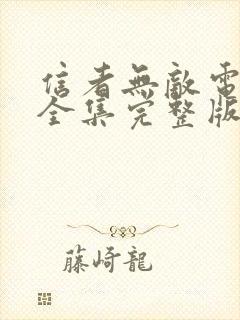 信者無敵電
全集完整版
藤崎龍